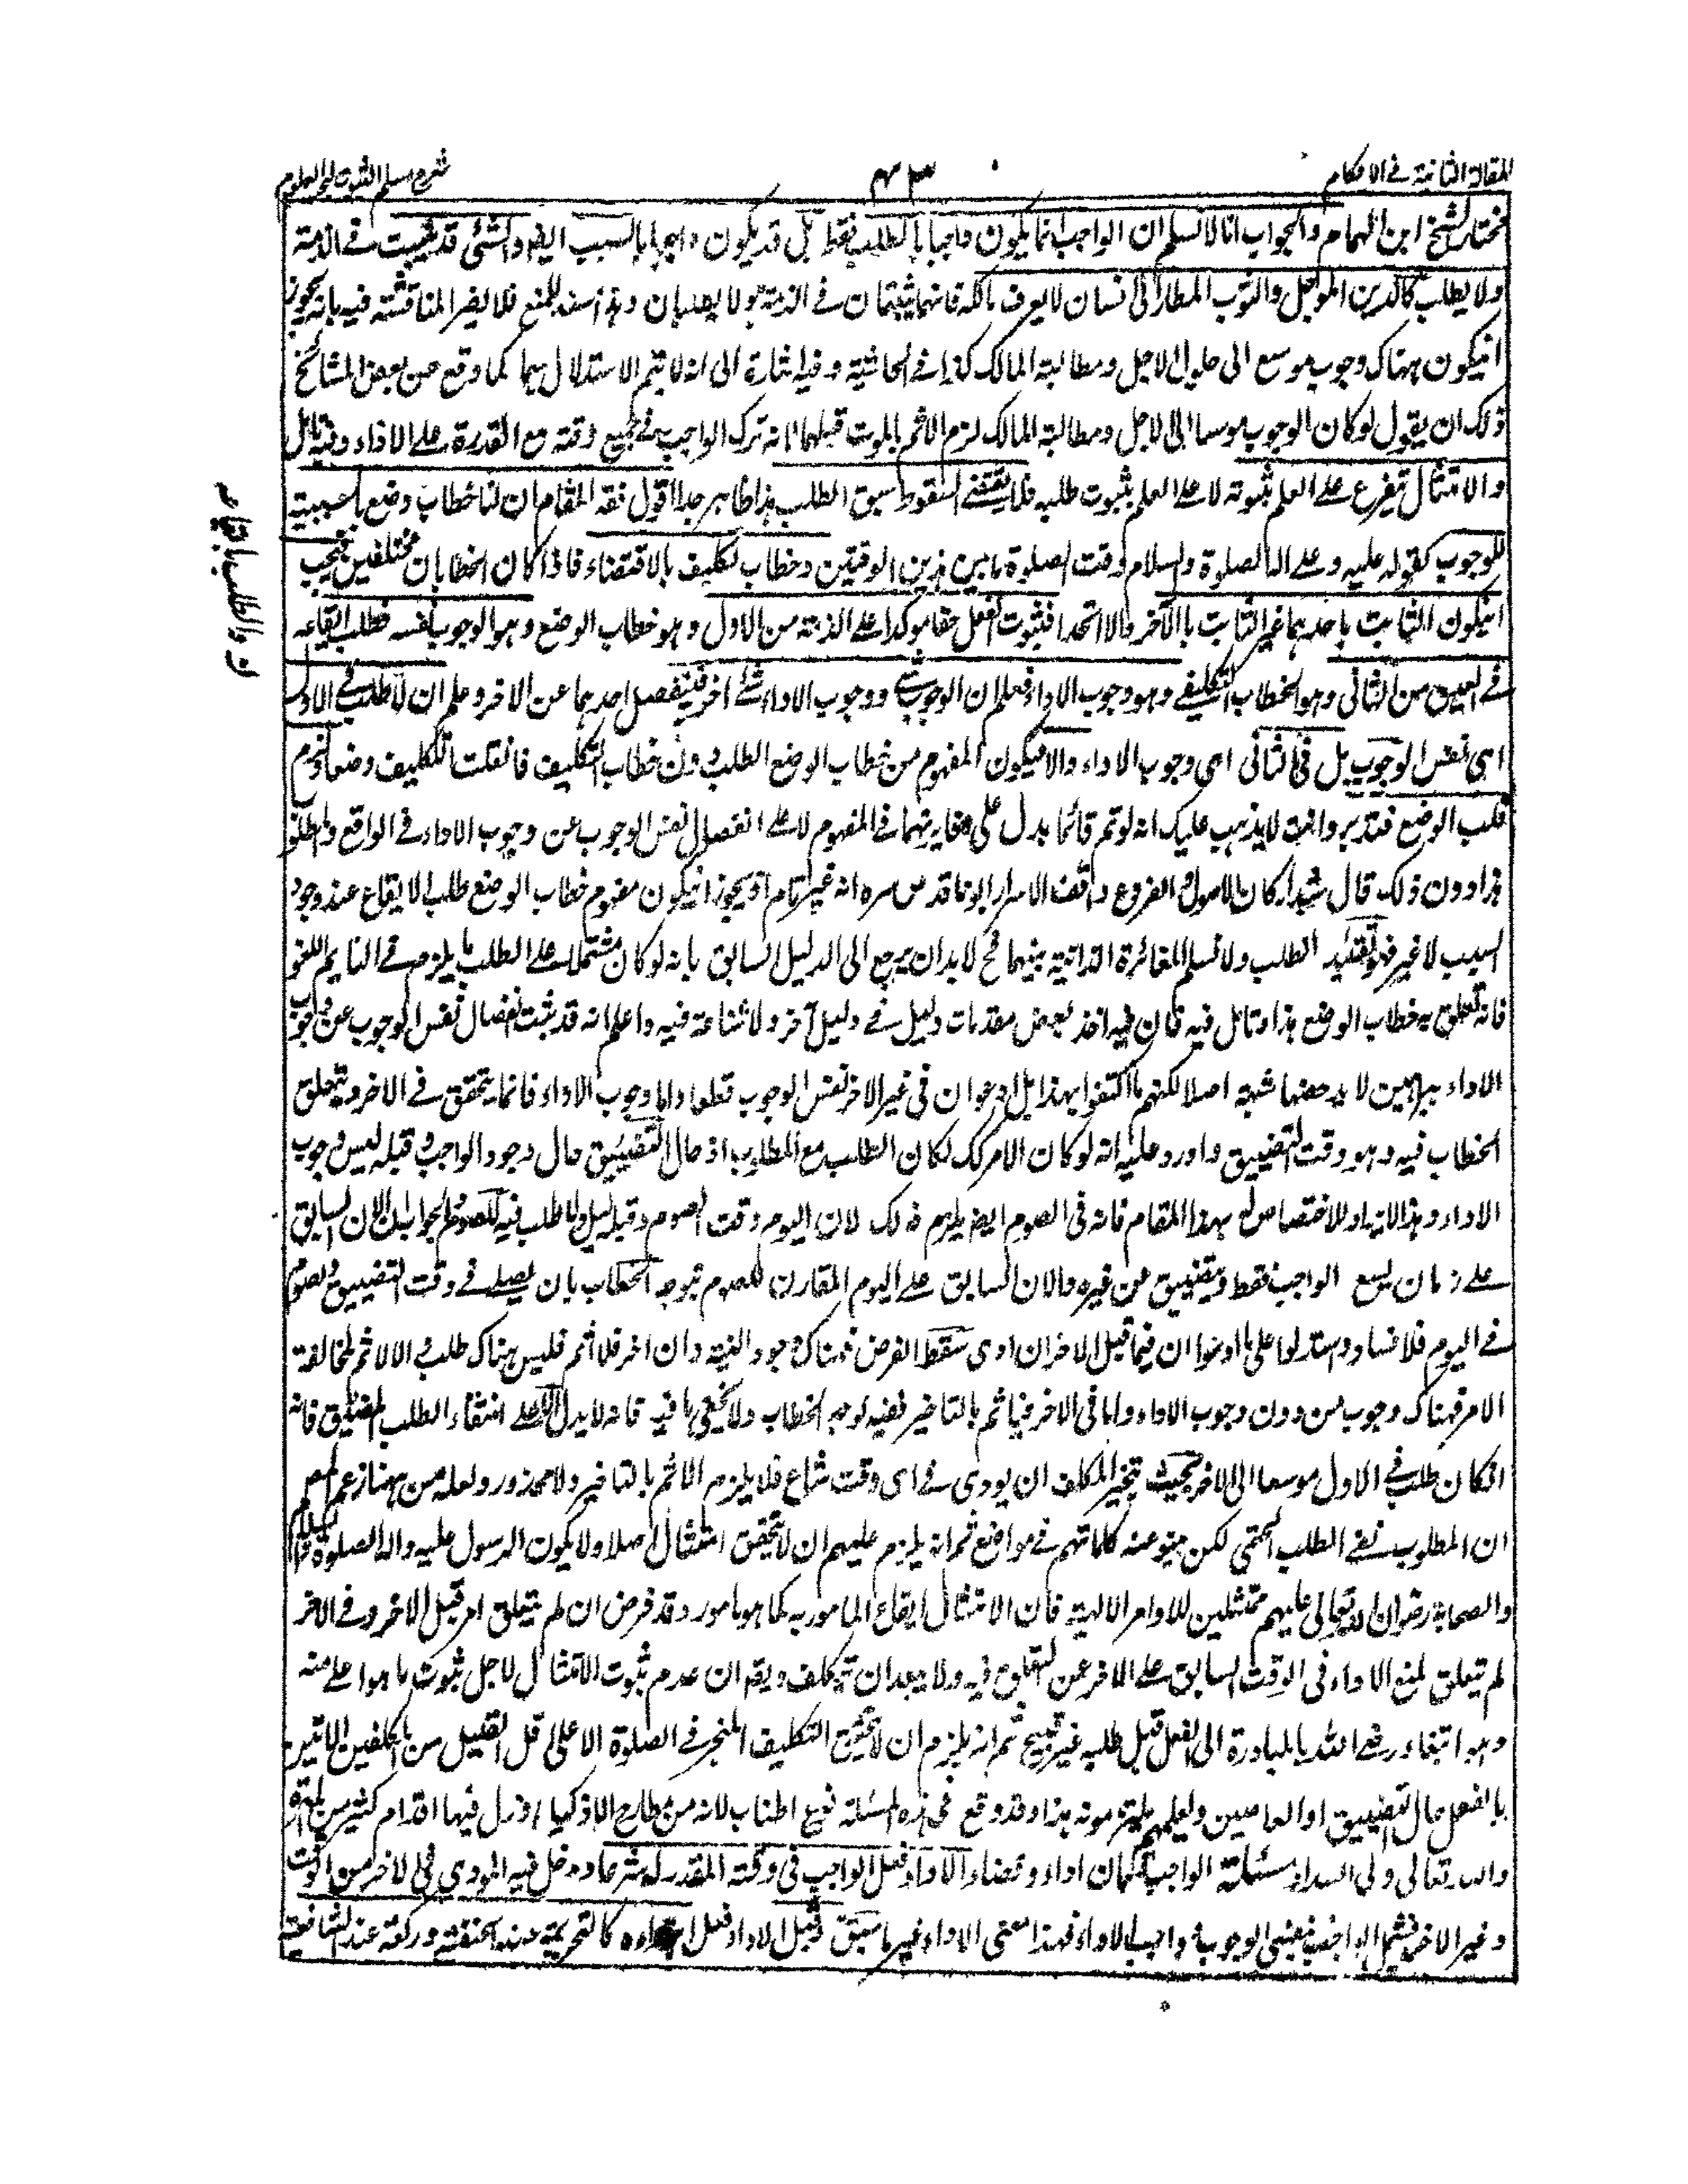 المقالة الثانية في الاحكام
٤٣
شرح مسلم الثبوت لبحر العلوم
مختار الشيخ ابن الهمام والجواب انا لا نسلم ان الواجب انما يكون واجبا بالطلب فقط بل قد يكون واجبا بالسبب ايضا والشئ قد يثبت في الذمة
ولا يطلب كالدين المؤجل والثوب المطار الى انسان لا يعرف مالكه فانهما يثبتان في الذمة ولا يطلبان وهذا سند للمنع فلا يضر المناقشة فيه بانه يجوز
انيكون هناك وجوب موسع الى حلول الاجل ومطالبة المالك كذا في الحاشية وفيه اشارة الى انه لا يتم الاستدلال بهما كما وقع من بعض المشائخ
ذلك ان يقول لو كان الوجوب موسعا الى الاجل ومطالبة المالك لزم الاثم بالموت قبلهما لانه ترك الواجب في جميع وقته مع القدرة على الاداء وفيه تأمل
والامتثال يتفرع على العلم بثبوته لا على العلم بثبوت طلبه فلا يقتضي السقوط سبق الطلب هذا ظاهر جدا اقول فقه المقام ان لنا خطاب وضع بالسببية
للوجوب كقوله عليه وعلى اله الصلوة والسلام وقت الصلوة ما بين هذين الوقتين وخطاب تكليف بالاقتضاء فاذا كان الخطابان مختلفين فيجب
انيكون الثابت باحدهما غير الثابت بالآخر والا اتحدا فثبوت الفعل حقا موكدا على الذمة من الاول وهو خطاب الوضع وهو الوجوب نفسه فطلب ايقاعه
في العين من الثاني وهو الخطاب التكليفي وهو وجوب الاداء فعلم ان الوجوب شئ ووجوب الاداء شئ اخر فينفصل احدهما عن الاخر وعلم ان لا طلب في الاول
اي نفس الوجوب بل في الثاني اي وجوب الاداء والا فيكون المفهوم من خطاب الوضع الطلب دون خطاب التكليف فانقلب التكليف وضعا ولزم
قلب الوضع فتدبر وانت لا يذهب عليك انه لو تم فانما يدل على مغايرتهما في المفهوم لا على انفصال نفس الوجوب عن وجوب الاداء في الواقع والمطلوب
هذا دون ذلك قال مشيد اركان الاصول والفروع واقف الاسرار ابونا قدس سره انه غير تام اذ يجوز انيكون مفهوم خطاب الوضع طلب الايقاع عند وجود
السبب لا غير فهو تقييد الطلب ولا نسلم المغائرة الذاتية بينهما فح لا بد ان يرجع الى الدليل السابق بانه لو كان مشتملا على الطلب يلزم في النايم اللغو
فانه تعلق به خطاب الوضع هذا وتامل فيه فان فيه اخذ بعض مقدمات دليل في دليل آخر ولا شناعة فيه واعلم انه قد ثبت انفصال نفس الوجوب عن وجوب
الاداء ببراهين لا يدحضها شبهة اصلا لكنهم ما اكتفوا بهذا بل ادعوا ان في غير الاخر نفس الوجوب قطعا واما وجوب الاداء فانما يتحقق في الاخر ويتعلق
الخطاب فيه وهو وقت التضييق واورد عليه انه لو كان الامر كك لكان الطلب مع المطلوب اذ حال التضييق حال وجود الواجب وقبله ليس وجوب
الاداء وهذا الايراد لا اختصاص له بهذا المقام فانه في الصوم ايضا يلزم ذلك لان اليوم وقت الصوم وقبله ليل ولا طلب فيه للصوم والجواب ان الآن السابق
على زمان يسع الواجب فقط ويتضيق عن غيره والان السابق على اليوم المقارن للصوم توجه الخطاب بان يصلي في وقت التضييق ويصوم
في اليوم فلا فساد واستدلوا على ما ادعوا ان فيما قبل الاخر ان ادى سقط الفرض فهناك وجود الفيه وان اخر فلا اثم فليس هناك طلب والا لاثم لمخالفة
الامر فهناك وجوب من دون وجوب الاداء واما في الاخر فيأثم بالتاخير ففيه توجه الخطاب ولا يخفى ما فيه فانه لا يدل الا على انتفاء الطلب المضيق فانه
انكان طلب في الاول موسعا الى الاخر بحيث يتخير المكلف ان يودي في اي وقت شاء فلا يلزم الاثم بالتاخير ولا محذور ولعله من ههنا زعم المص
ان المطلوب نفي الطلب الحتمي لكن ينبو عنه كلماتهم في مواضع ثم انه يلزم عليهم ان لا يتحقق امتثال اصلا ولا يكون الرسول عليه واله الصلوة والسلام
والصحابة رضوان الله تعالى عليهم ممتثلين للاوامر الالهية فان الامتثال ايقاع المامور به كما هو مامور وقد فرض ان لم يتعلق امر قبل الاخر وفي الاخر
لم يتعلق لمنع الاداء في الوقت السابق على الاخر عن التعلق فيه ولا يبعد ان يتكلف ويقال ان عدم ثبوت الامتثال لاجل ثبوت ما هو اعلى منه
وهو ابتغاء رضى الله بالمبادرة الى الفعل قبل طلبه غير قبيح ثم انه يلزم ان لا يتحقق التكليف المنجز في الصلوة الا على اقل القليل من المكلفين الآتين
بالفعل حال التضييق او العاصين ولعلهم يلتزمونه هذا وقد وقع في هذه المسئلة نوع اطناب لانه من مطارح الاذكيا اذ زل فيها اقدام كثير من المهرة
والله تعالى ولي السداد مسئلة الواجب قسمان اداء وقضاء الاداء فعل الواجب في وقته المقدر له شرعا ودخل فيه المؤدى في الاخر من الوقت
وغير الاخر فيشمل الواجب بنفس الوجوب وواجب الاداء فهذا معنى الاداء غير ما سبق وقيل الاداء فعل ابتداءه كالتحريمة عند الحنفية وركعة عند الشافعية